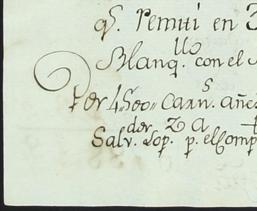 qᵉ. remiti en
Blanq.ˡˡᵒ con el
Por 4500 Carnˢ. añe
Salv.ᵈᵒʳ Lop.ᶻ p.ᵃ el Comp